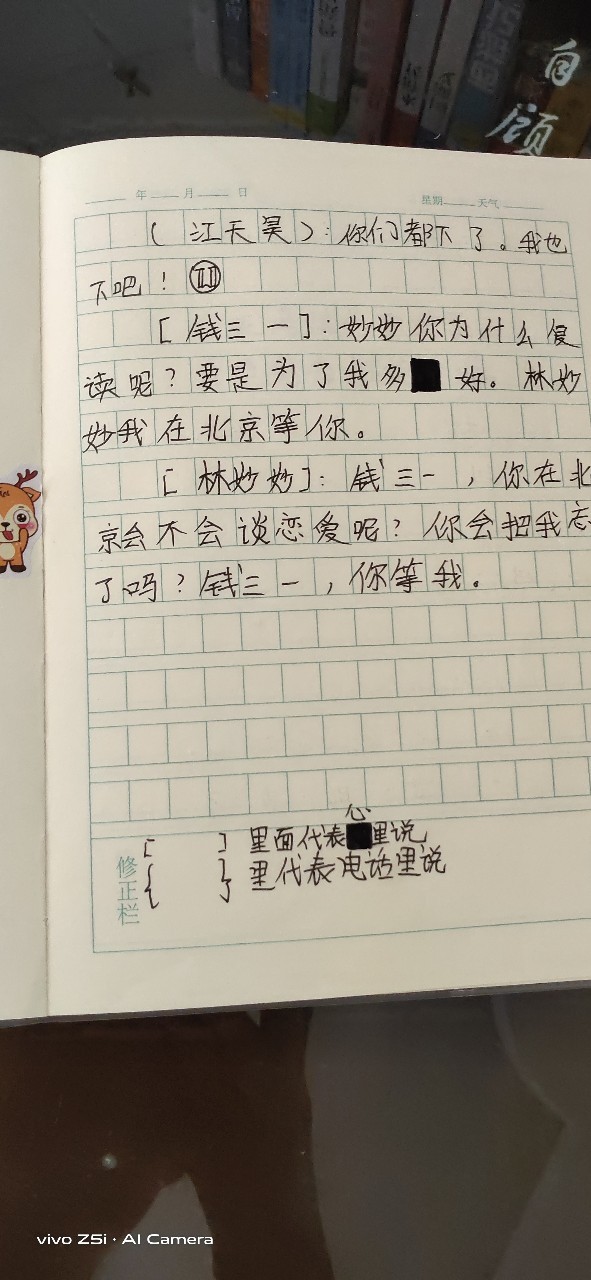 自
顾
年 月 日 星期 天气
(江天昊):你们都下了。我也
下吧！
[钱三一]:妙妙你为什么复
读呢？要是为了我多 好。林妙
妙我在北京等你。
[林妙妙]:钱三一，你在北
京会不会谈恋爱呢？你会把我忘
了吗？钱三一，你等我。
心
[ ]里面代表 里说
{ }里代表电话里说
修正栏
vivo Z5i · AI Camera